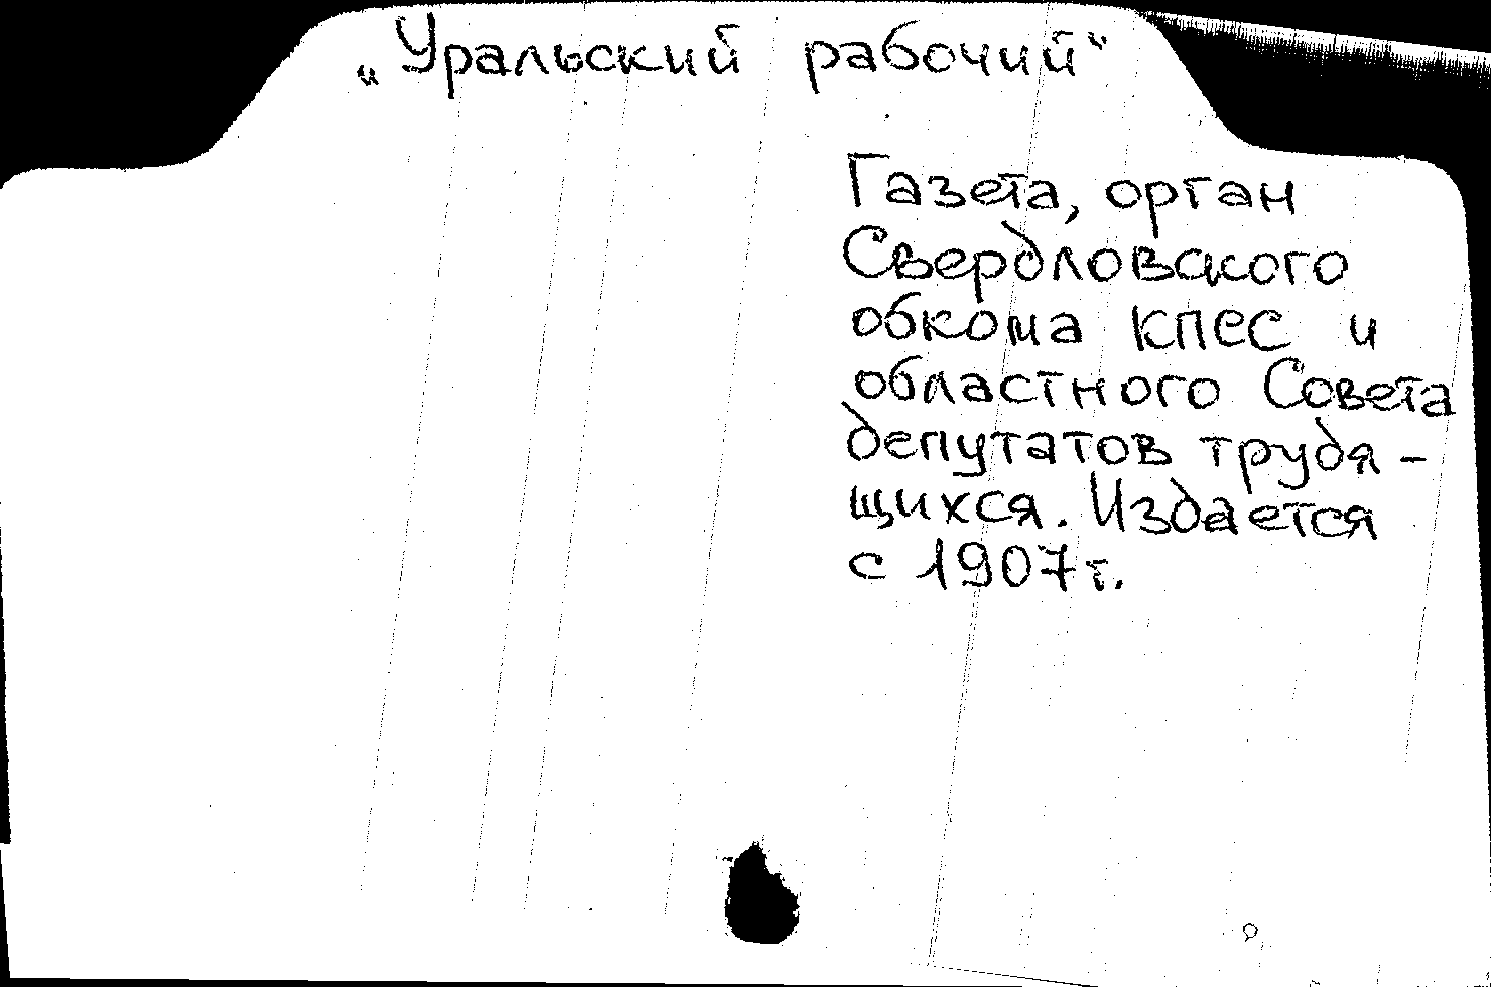 „Уральский рабочий“
Газета, орган
Свердловского
обкома КПСС и
областного Совета
депутатов трудя-
щихся. Издается
с 1907 г.